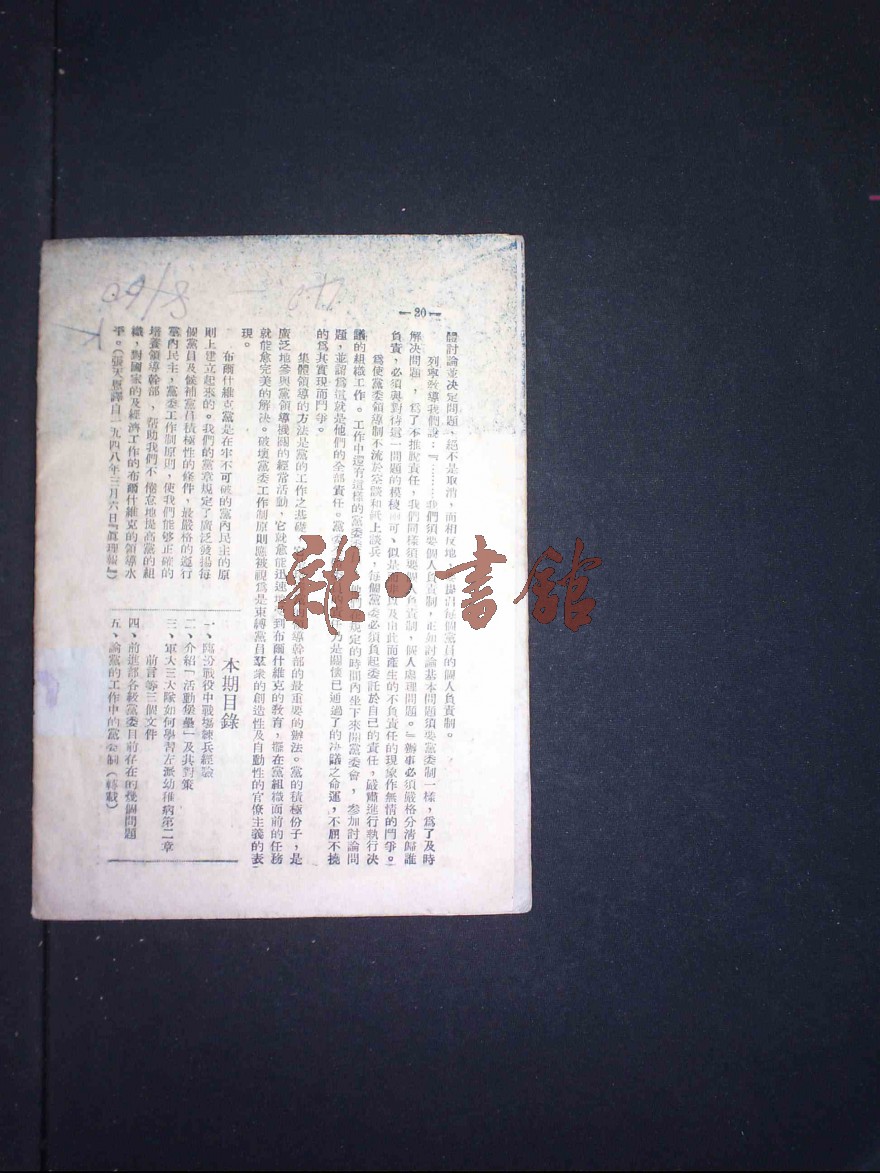 —20—
體討論並決定問題，絕不是取消，而相反地
個黨員的個人負責制。
列寧教導我們說：『………我們須要個人負責制，正如討論基本問題須要黨委制一樣，爲了及時
解決問題，爲了不推脫責任，我們同樣須要個人負責制，個人處理問題。』辦事必須嚴格分清歸誰
負責，必須與對待這一問題的模稜兩可、似是而非以及由此而產生的不負責任的現象作無情的鬥爭。
爲使黨委領導制不流於空談和紙上談兵，每個黨委必須負起委託於自己的責任，嚴肅進行執行決
議的組織工作。工作中還有這樣的黨委委員，他們在規定的時間內坐下來開黨委會，參加討論問
題，並認爲這就是他們的全部責任。黨委委員的責任乃是關懷已通過了的決議之命運，不屈不撓
的爲其實現而鬥爭。
集體領導的方法是黨的工作之基礎
領導幹部的最重要的辦法。黨的積極份子，是
廣泛地參與黨領導機關的經常活動，它就愈能迅速
到布爾什維克的教育，擺在黨組織面前的任務
就能愈完美的解決。破壞黨委工作制原則應被視爲是束縛黨員羣衆的創造性及自動性的官僚主義的表
現。
布爾什維克黨是在牢不可破的黨內民主的原
則上建立起來的。我們的黨章規定了廣泛發揚每
個黨員及候補黨員積極性的條件，最嚴格的遵行
黨內民主，黨委工作制原則，使我們能够正確的
培養領導幹部，帮助我們不倦怠地提高黨的組
織，對國家的及經濟工作的布爾什維克的領導水
平。（張天恩譯自一九四八年三月六日『眞理報』）
本期目錄
一、臨汾戰役中戰場練兵經驗
二、介紹「活動堡壘」及其對策
三、軍大三大隊如何學習左派幼稚病第二章
前言等三個文件
四、前進部各級黨委目前存在的幾個問題
五、論黨的工作中的黨委制（轉載）
雜·書館